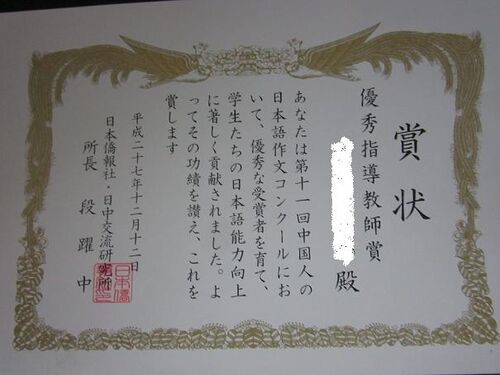 賞状
優秀指導教師賞
殿
あなたは第十一回中国人の
日本語作文コンクールにお
いて、優秀な受賞者を育て、
学生たちの日本語能力向上
に著しく貢献されました。よ
ってその功績を讃え、これを
賞します
平成二十七年十二月十二日
日本僑報社・日中交流研究所
所長 段 躍 中